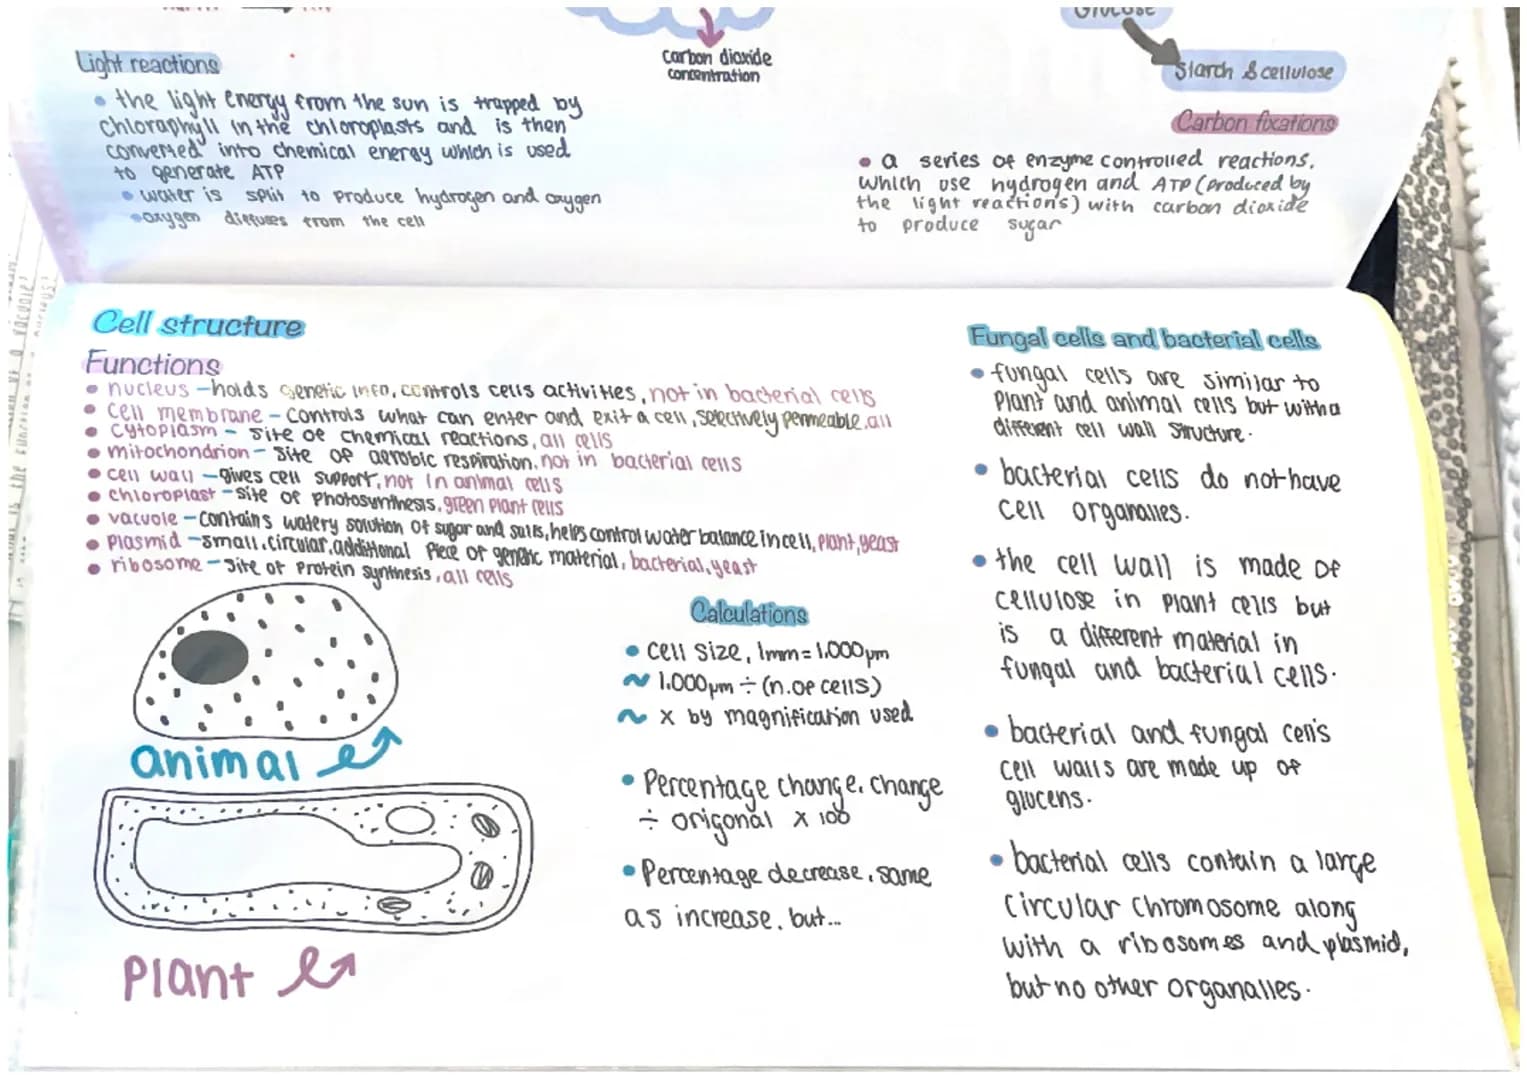 Glucose
carbon dioxide
concentration
Starch & cellulose
Light reactions
• the light energy from the sun is trapped by
chloraphyll in the chloroplasts and is then
converted into chemical energy which is used
to generate ATP
• water is split to produce hydrogen and oxygen
• oxygen diffuses from the cell
Carbon fixations
• a series of enzyme controlled reactions,
which use hydrogen and ATP (produced by
the light reactions) with carbon dioxide
to produce sugar
Cell structure
Functions
• nucleus - holds genetic info, controls cells activities, not in bacterial cells
• Cell membrane - controls what can enter and exit a cell, selectively permeable, all
• cytoplasm - site of chemical reactions, all cells
• mitochondrion - site of aerobic respiration, not in bacterial cells
• cell wall - gives cell support, not in animal cells
• chloroplast - site of photosynthesis, green plant cells
• vacuole - contains watery solution of sugar and salts, helps control water balance in cell, plant, yeast
• plasmid - small, circular, additional piece of genetic material, bacterial, yeast
• ribosome - site of protein synthesis, all cells
animal
Plant
Calculations
• cell size, 1mm = 1,000µm
~ 1,000µm ÷ (n. of cells)
~ x by magnification used
• Percentage change, change
÷ origonal x 100
• Percentage decrease, same
as increase, but...
Fungal cells and bacterial cells
• fungal cells are similar to
plant and animal cells but with a
different cell wall structure.
• bacterial cells do not have
cell organalles.
• the cell wall is made of
cellulose in plant cells but
is a different material in
fungal and bacterial cells.
• bacterial and fungal cells
cell walls are made up of
glucens.
• bacterial cells contain a large
circular chromosome along
with a ribosomes and plasmid,
but no other organalles.